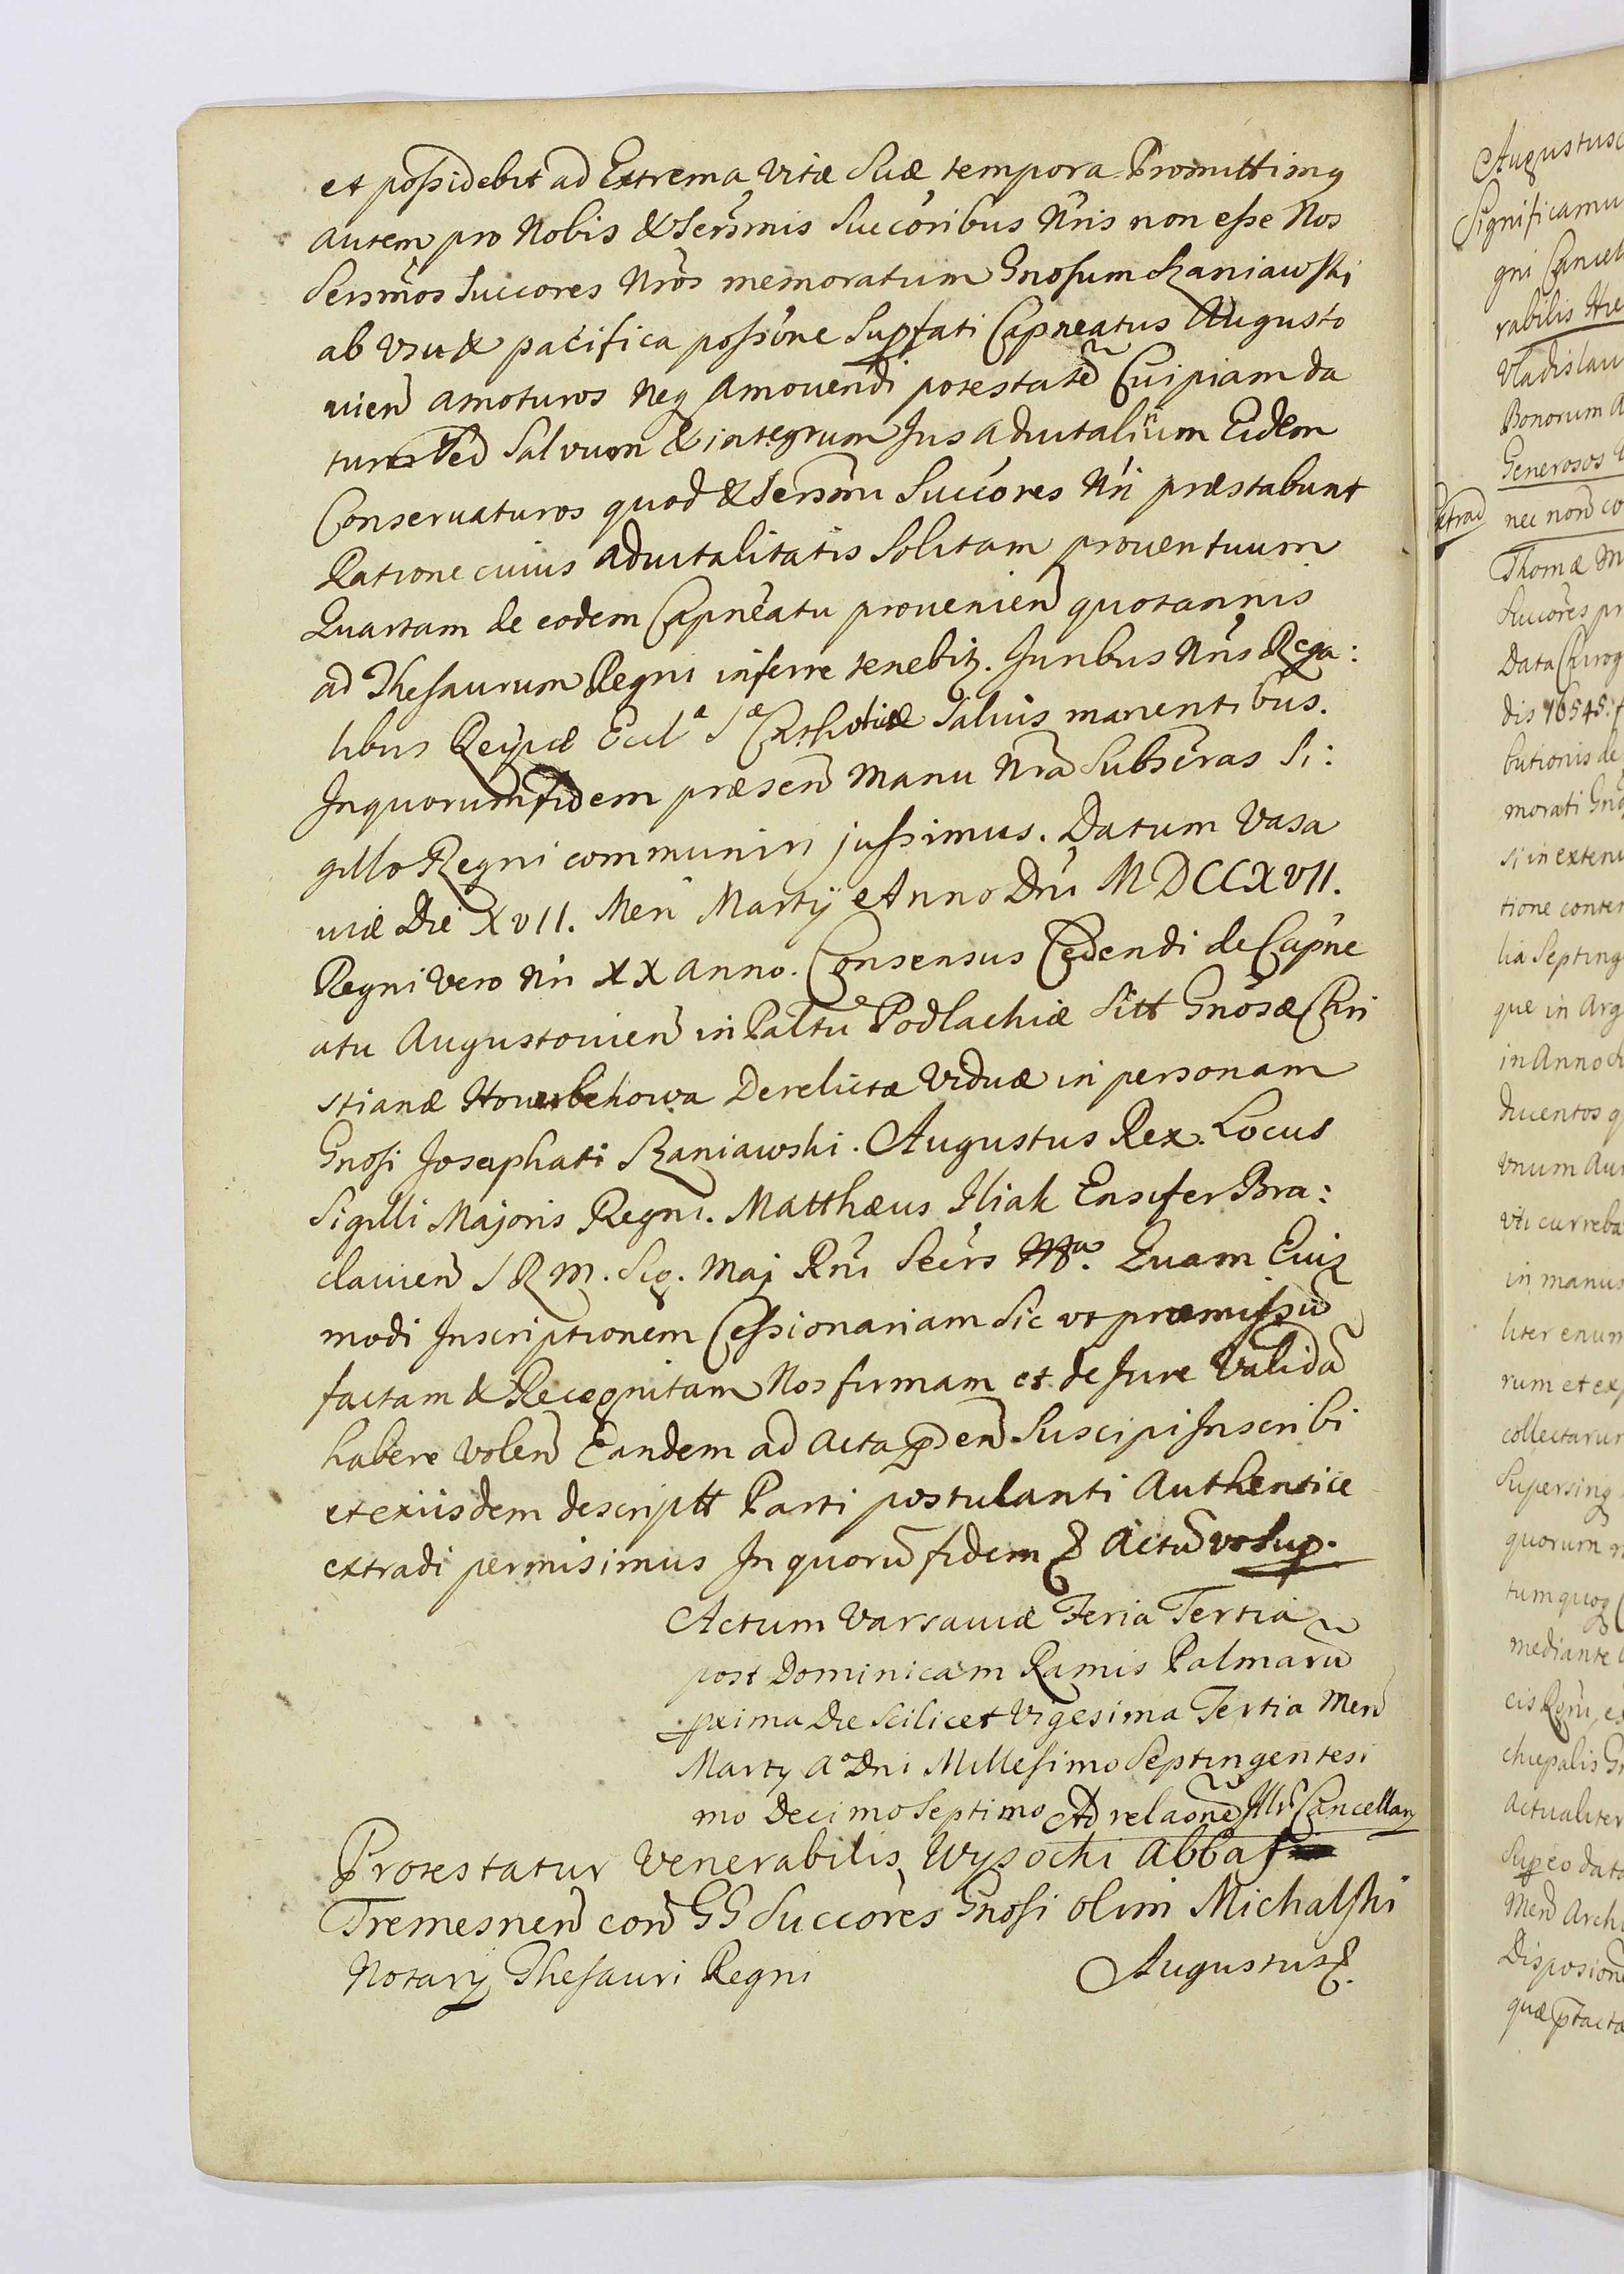 et possidebit ad Extrema Vitæ Suæ tempora Promittimq
autem pro Nobis & Sersmis Succoribus Nris non esse Nos
Sersmos Succores Nros memoratum Gnosum Szaniawski
ab Usu & pacifica possione Supfati Capneatus Augusto
uien amoturos neq amouendi potestatē Cuipiam da
turos Sed Salvum & integrum Jus aduitalium Eidem
Conseruaturos quod & Sersmi Succores Nri præstabunt
Ratione cuius aduitalitatis Solitam prouentuum
Quartam de eodem Capneatu prouenien quotannis
ad Thesaurum Regni inferre tenebit. Juribus Nris Rega:
libus Reipcæ Eccl^æ S^æ Catholicæ Saluis manentibus.
In quorum fidem præsen Manu Nra Subscras Si:
gillo Regni communiri jussimus. Datum Varsa
uiæ Die XVII. Men Martij Anno Dni MDCCXVII.
Regni Vero Nri XX anno. Consensus Cedendi de Capne
atu Augustouien in Paltu Podlachiæ Sitt Gnosæ Chri
stianæ Houerbekowa Derelictæ Viduæ in personam
Gnosi Josaphati Szaniawski. Augustus Rex. Locus
Sigilli Majoris Regni. Matthæus Iliak Ensifer Bra:
clauien S R M. Sig. Maj Rni Secrs Mp. Quam Eius
modi Inscriptionem Cessionariam Sic ut præmissū
factam & Recognitam Nos firmam et de Jure Validā
habere Volen Eandem ad Acta pden Suscipi Inscribi
et ex iisdem descriptt Parti postulanti Authentice
extradi permisimus In quorū fidem & Actū ut Sup.
Actum Varsauiæ Feria Tertia
post Dominicam Ramis Palmarū
pxima Die Scilicet Vigesima Tertia Men
Martij Aº Dni Millesimo Septingentesi
mo Decimo Septimo Ad relaonē Illr Cancellarij
Protestatur Venerabilis Wysocki Abbas
Tremesnen con GG Succores Gnosi olim Michalski
Notarij Thesauri Regni Augustus &.
Significamu
gni Cancel
rabilis
Vladislau
Bonorum A
Generosos
extrad
nec non co
Thomæ M
Succores pr
Data Chirog
dis 16545
butionis de
morati Gno
si in exten
tione conten
lia Septing
que in Arg
in Anno
ducentos q
Unum Aur
uti curreba
in manus
liter enum
rum et exp
collectarum
Supersing
quorum
tum quoq
mediante
cis Rgni, e
chiepalis G
actualiter
Sup eo data
Men Archi
Disposione
quæ ptacta